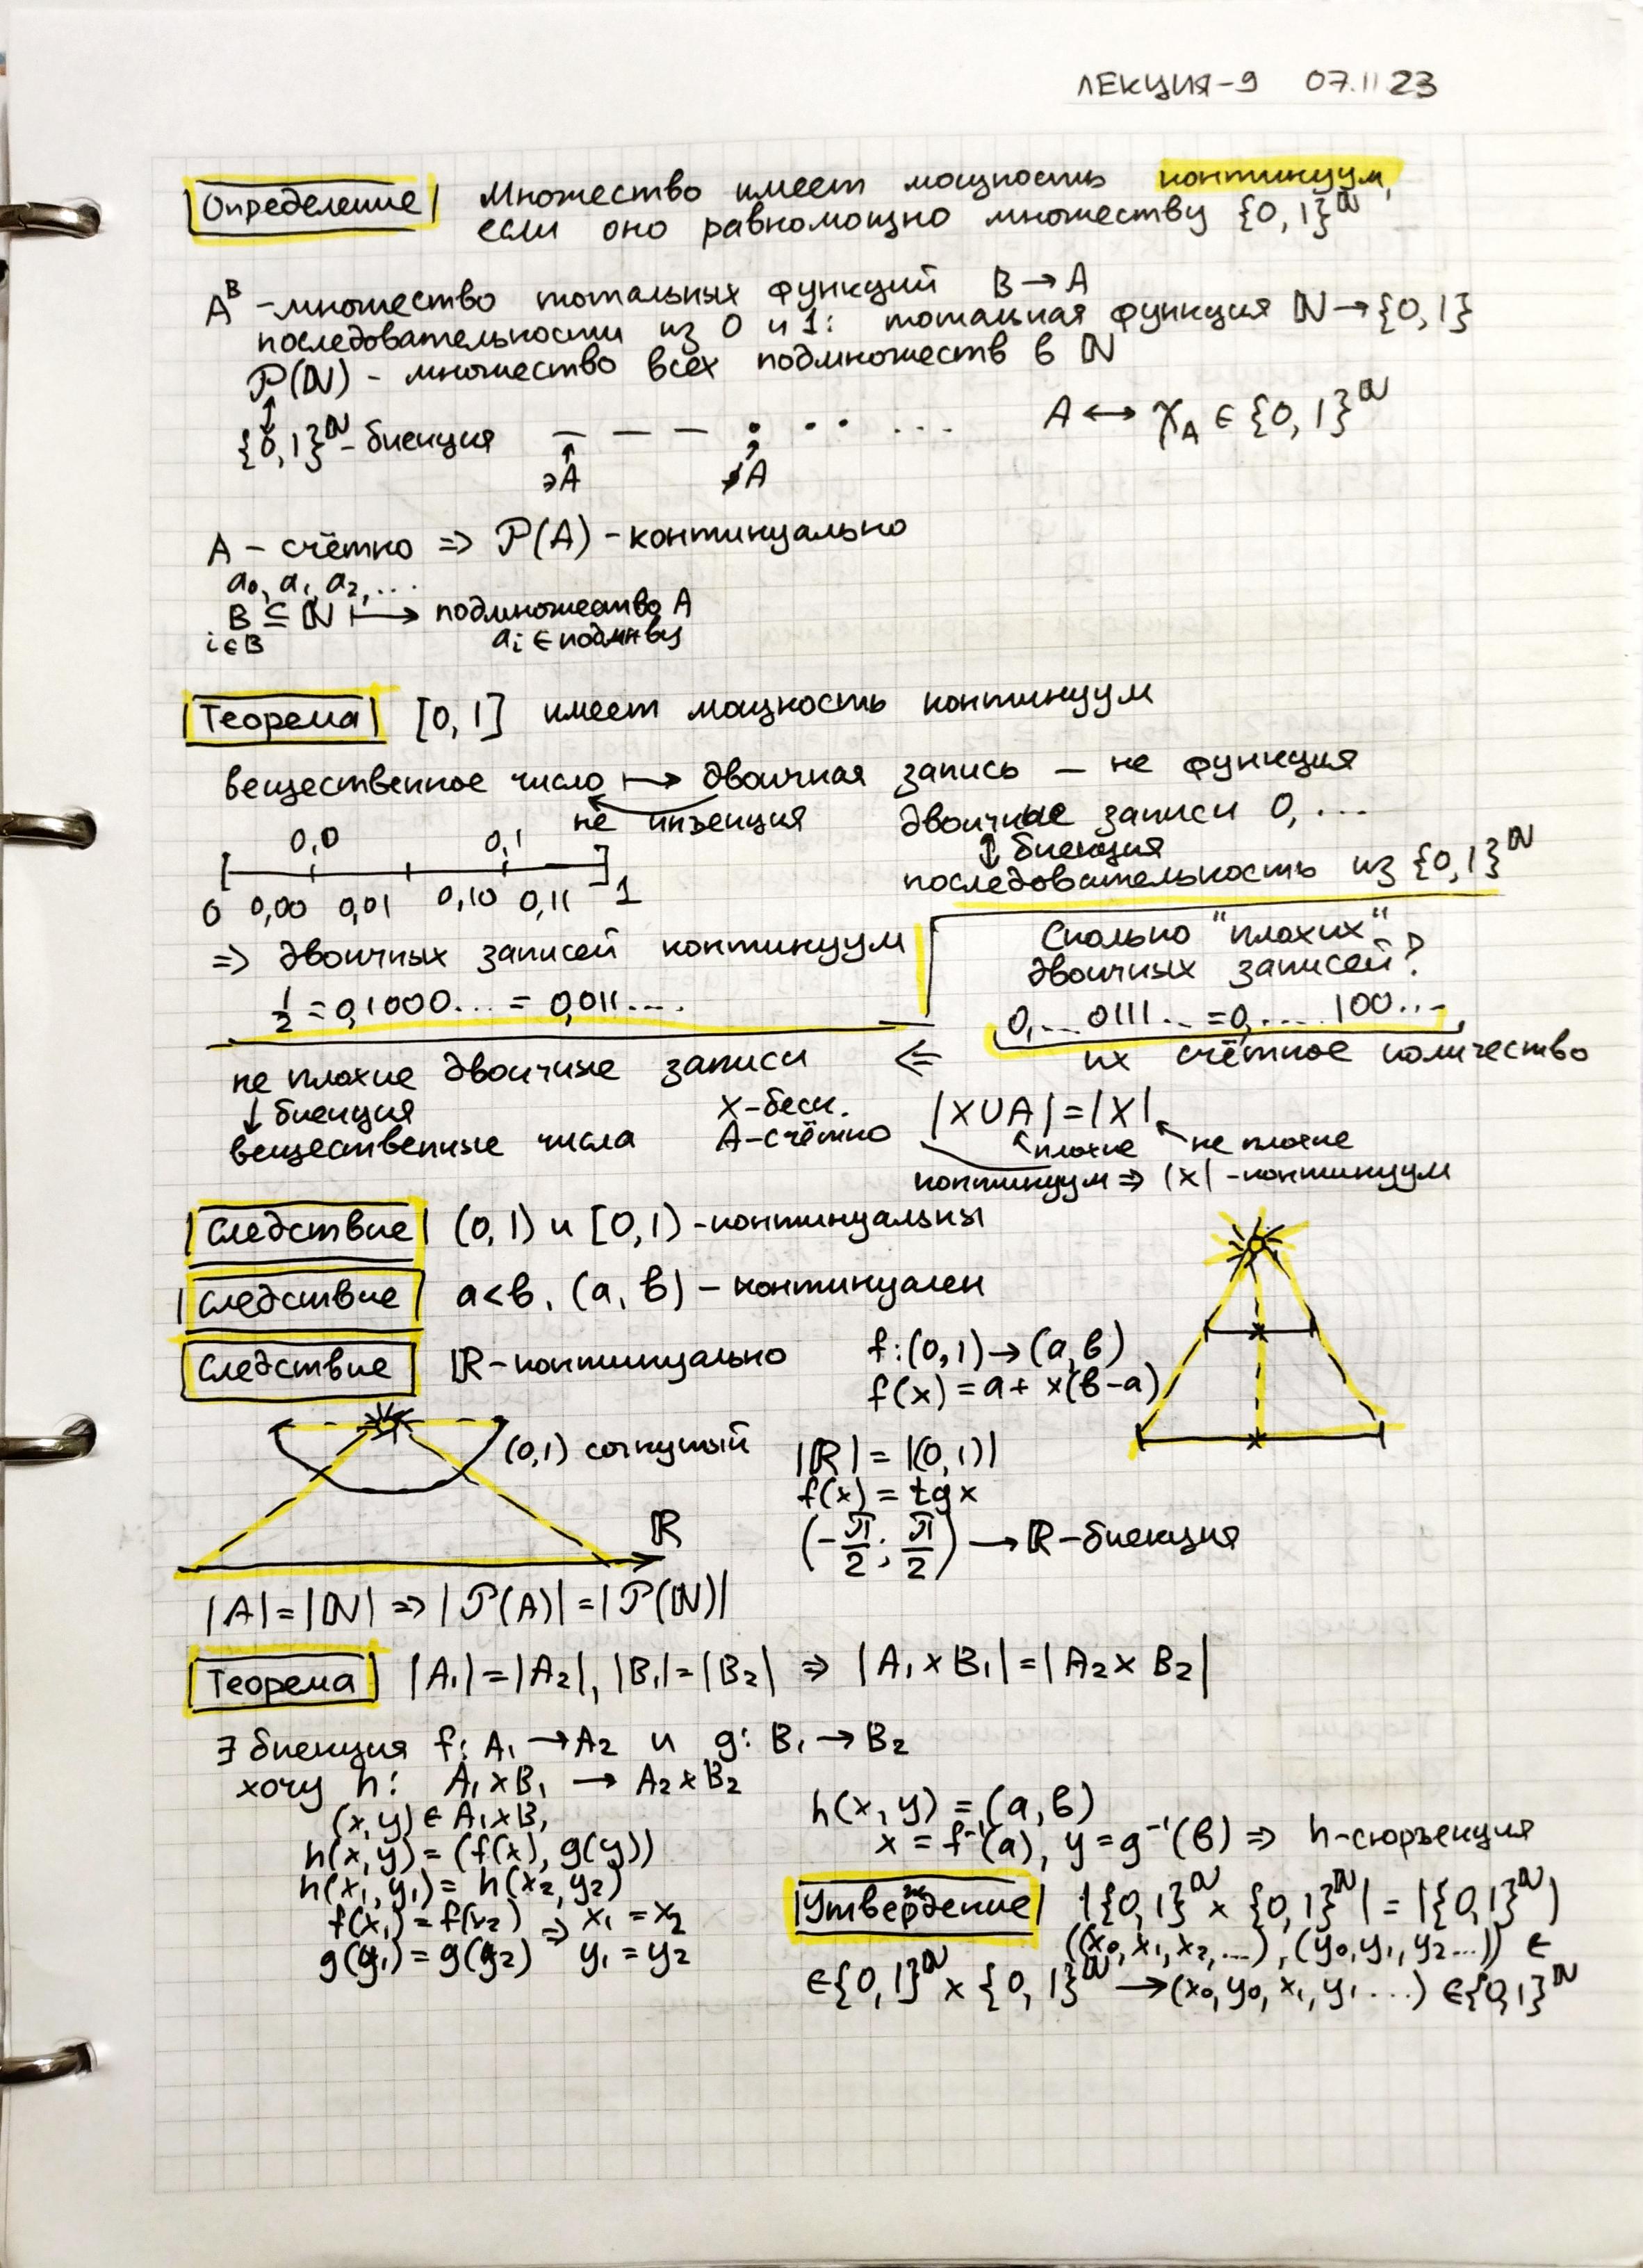 ЛЕКЦИЯ-9 07.11 23
Определение Множество имеет мощность континуум,
если оно равномощно множеству {0,1}^ℕ
A^B - множество тотальных функций B → A
последовательности из 0 и 1: тотальная функция ℕ → {0,1}
𝒫(ℕ) - множество всех подмножеств в ℕ
↕
{0,1}^ℕ - биекция — — — • • • ... A ↔ χ_A ∈ {0,1}^ℕ
∋A ∌A
A - счётно ⇒ 𝒫(A) - континуально
a₀, a₁, a₂, ...
B ⊆ ℕ ↦ подмножество A
i∈B aᵢ ∈ подмн-ву
Теорема [0,1] имеет мощность континуум
вещественное число ↦ двоичная запись — не функция
не инъекция двоичные записи 0, ...
↕ биекция
0,0 0,1
последовательность из {0,1}^ℕ
0 0,00 0,01 0,10 0,11 1
⇒ двоичных записей континуум
1/2 = 0,1000... = 0,011....
Сколько "плохих"
двоичных записей?
0,...0111... = 0,....100...,
не плохие двоичные записи ⇐ их счётное количество
↓ биекция X-беск. |X∪A| = |X|
вещественные числа A-счётно плохие не плохие
континуум ⇒ |X| - континуум
Следствие (0,1) и [0,1) - континуальны
Следствие a<b, (a,b) - континуален
Следствие ℝ - континуально f:(0,1)→(a,b)
f(x) = a + x(b-a)
(0,1) согнутый |ℝ| = |(0,1)|
f(x) = tg x
ℝ (-π/2; π/2) → ℝ - биекция
|A| = |ℕ| ⇒ |𝒫(A)| = |𝒫(ℕ)|
Теорема |A₁|=|A₂|, |B₁|=|B₂| ⇒ |A₁×B₁| = |A₂×B₂|
∃ биекция f: A₁ → A₂ и g: B₁ → B₂
хочу h: A₁×B₁ → A₂×B₂
(x,y) ∈ A₁×B₁
h(x,y) = (f(x), g(y))
h(x₁,y₁) = h(x₂,y₂)
f(x₁) = f(x₂) ⇒ x₁ = x₂
g(y₁) = g(y₂) y₁ = y₂
h(x,y) = (a,b)
x = f⁻¹(a), y = g⁻¹(b) ⇒ h-сюръекция
Утверждение |{0,1}^ℕ × {0,1}^ℕ| = |{0,1}^ℕ)
((x₀,x₁,x₂,...), (y₀,y₁,y₂...)) ∈
∈{0,1}^ℕ × {0,1}^ℕ → (x₀,y₀,x₁,y₁...) ∈{0,1}^ℕ